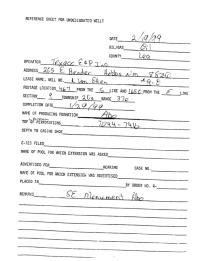 REFERENCE SHEET FOR UNDESIGNATED WELLS
DATE 2/9/99
OIL/GAS Oil
COUNTY Lea
OPERATOR Texaco E&P Inc
ADDRESS 205 E. Bender Hobbs nm 88240
LEASE NAME, WELL NO.
FOOTAGE LOCATION 467 FROM THE S LINE AND 1650 FROM THE E LINE
SECTION 9 TOWNSHIP RANGE 37E
COMPLETION DATE 1/29/99
NAME OF PRODUCING FORMATION Abo
TOP OF PERFORATIONS
DEPTH TO CASING SHOE
C-123 FILED
NAME OF POOL FOR WHICH EXTENSION WAS ASKED
ADVERTISED FOR HEARING CASE NO.
NAME OF POOL FOR WHICH EXTENSION WAS ADVERTISED
PLACED IN BY ORDER NO. R-
REMARKS SE Monument Abo